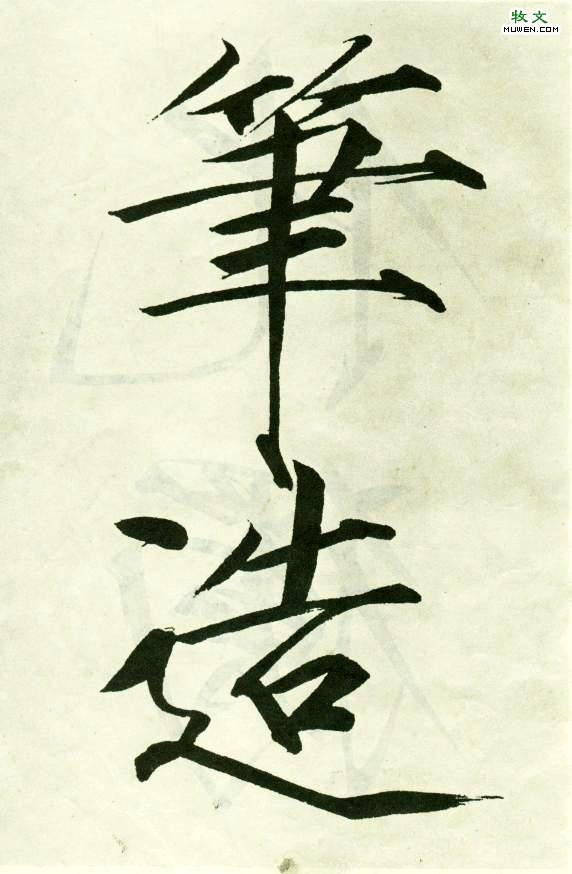 牧文
MUWEN.COM
筆
造